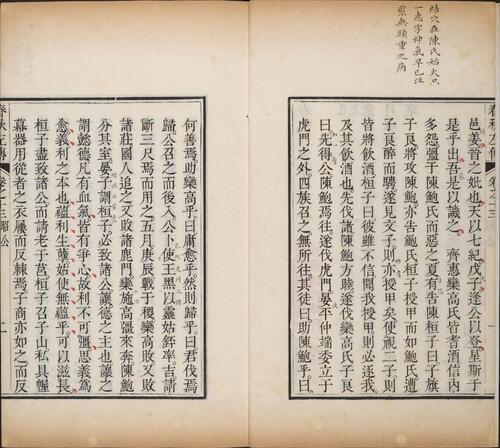 結穴在陳氏始大只
一字神氣早已注
緊無頭重之病
春秋左傳 卷之十三
邑姜晉之妣也天以七紀戊子逢公以登星斯于
是乎出吾是以譏之 齊惠欒高氏皆耆酒信內
多怨彊于陳鮑氏而惡之夏有告陳桓子曰子旗
子良將攻陳鮑亦告鮑氏桓子授甲而如鮑氏遭
子良醉而騁遂見文子則亦授甲矣使視二子則
皆將飲酒桓子曰彼雖不信聞我授甲則必逐我
及其飲酒也先伐諸陳鮑方睦遂伐欒高氏子良
曰先得公陳鮑焉往遂伐虎門晏平仲端委立于
虎門之外四族召之無所往其徒曰助陳鮑乎曰
何善焉助欒高乎曰庸愈乎然則歸乎曰君伐焉
歸公召之而後入公卜使王黑以靈姑銔率吉請
斷三尺焉而用之五月庚辰戰于稷欒高敗又敗
諸莊國人追之又敗諸鹿門欒施高彊來奔陳鮑
分其室晏子謂桓子必致諸公讓德之主也讓之
謂懿德凡有血氣皆有爭心故利不可彊思義為
愈義利之本也蘊利生孽姑使無蘊乎可以滋長
桓子盡致諸公而請老于莒桓子召子山私具幄
幕器用從者之衣屨而反棘焉子商亦如之而反
春秋左傳 卷之十三 昭公 二